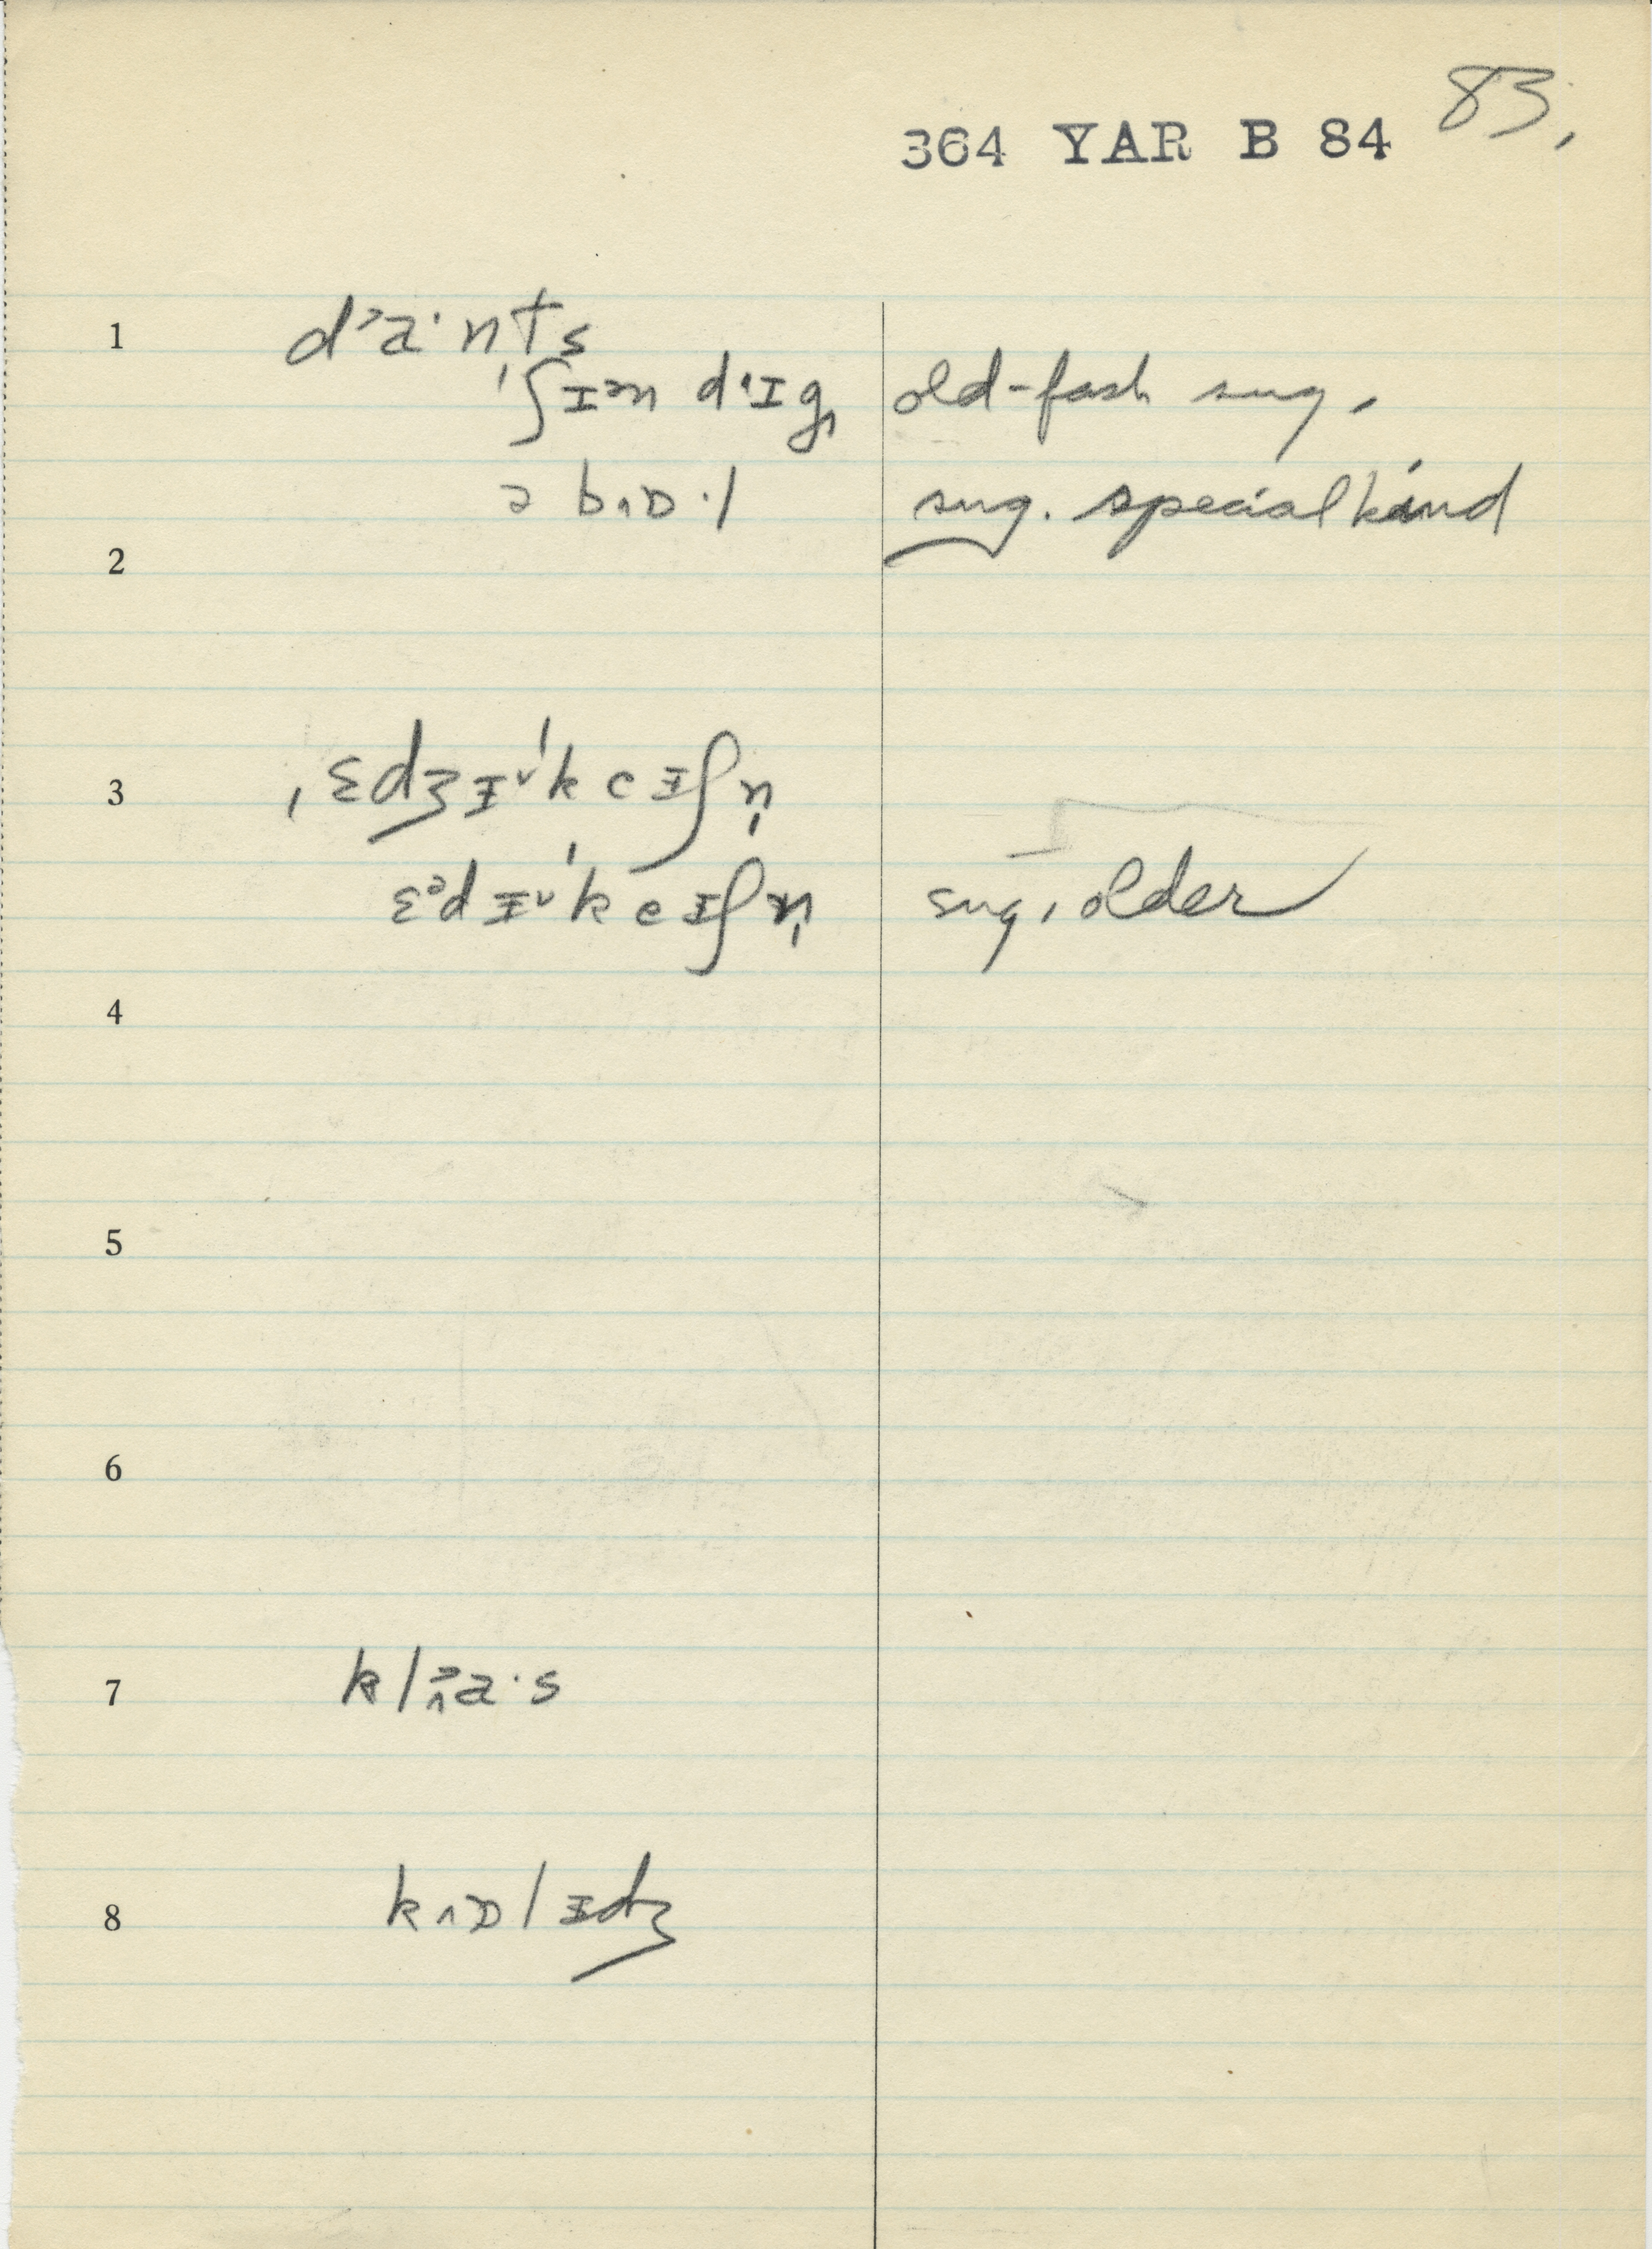 83.
364 YAR B 84
1 dᵊa·nts
ˈʃɪᵊn dˈɪg old-fash sug.
ə bɒ·l sug. special kind
2
3 ˌɛdʒɪˈkeɪʃn̩
ɛᵊdɪˈkeɪʃn̩ sug. older
4
5
6
7 klᵊa·s
8 kɒlɪdʒ